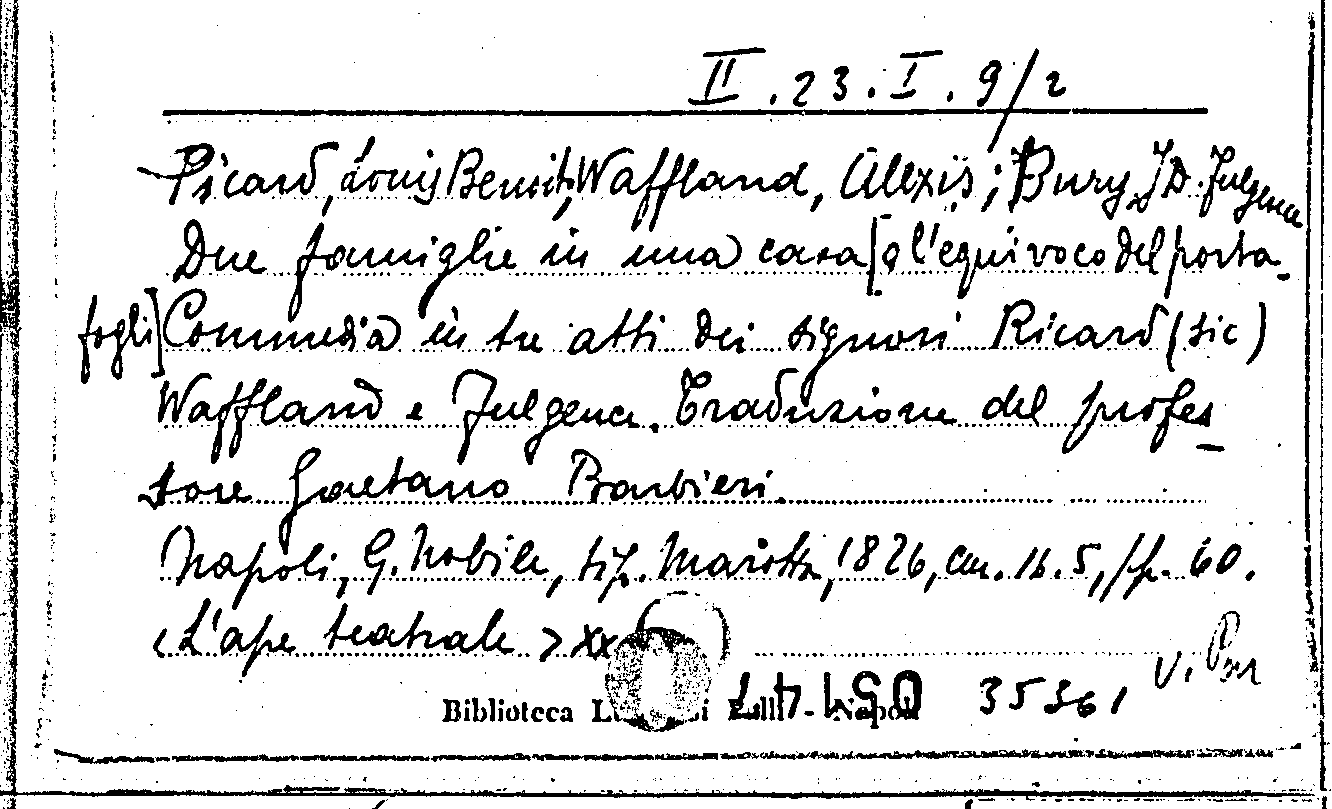 II.23.I.9/2
Picard, Louis Benoit, Waffland, Alexis; Bury, J.D. Fulgence
Due famiglie in una casa [o l'equivoco del porta-
fogli] Commedia in tre atti dei signori Ricard (sic)
Waffland e Fulgence. Traduzione del profes-
sore Gaetano Barbieri.
Napoli, G. Nobile, tip. Marotta, 1826, cm. 16.5, pp. 60.
<L'ape teatrale> xx
Biblioteca - Napoli
35361